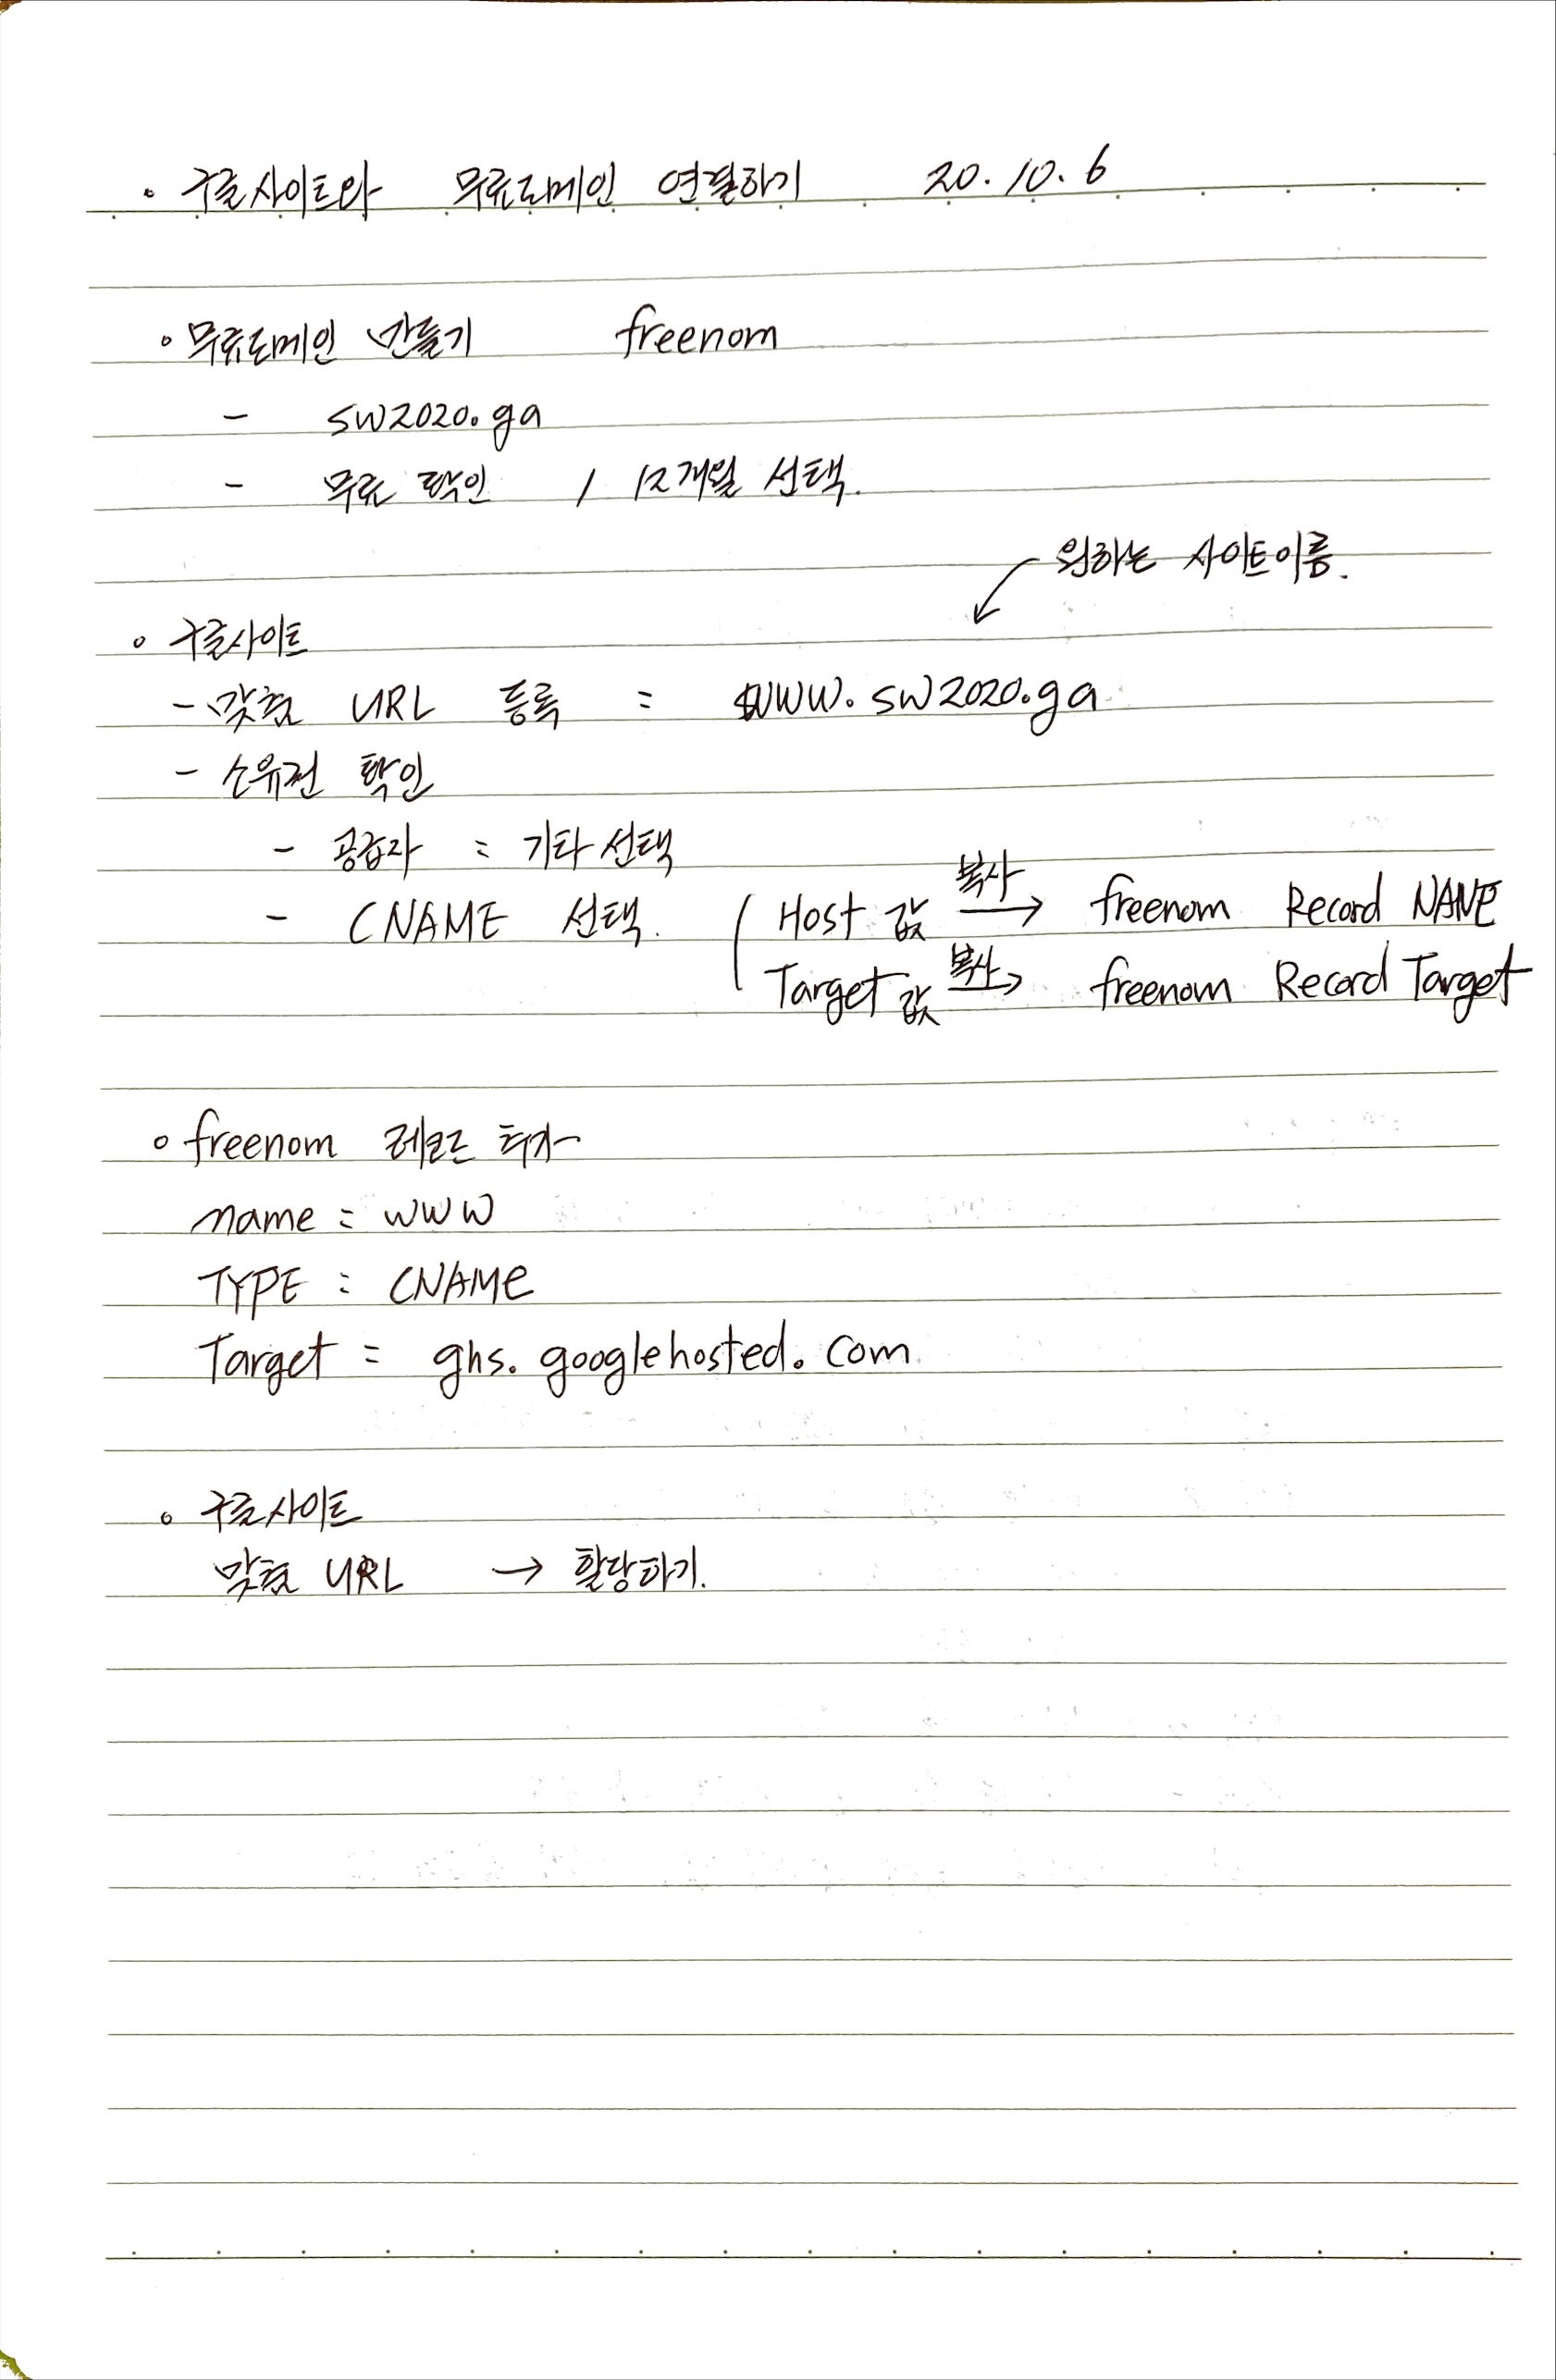 • 구글사이트와 무료도메인 연결하기 20. 10. 6
◦ 무료도메인 만들기 freenom
- sw2020.ga
- 무료 확인 / 12개월 선택.
원하는 사이트이름.
◦ 구글사이트
- 맞춤 URL 등록 = www.sw2020.ga
- 소유권 확인
- 공급자 : 기타 선택
- CNAME 선택. ( Host 값 복사 → freenom Record NAME
Target 값 복사 → freenom Record Target
◦ freenom 레코드 추가
name = www
TYPE = CNAME
Target = ghs.googlehosted.com
◦ 구글사이트
맞춤 URL → 할당하기.